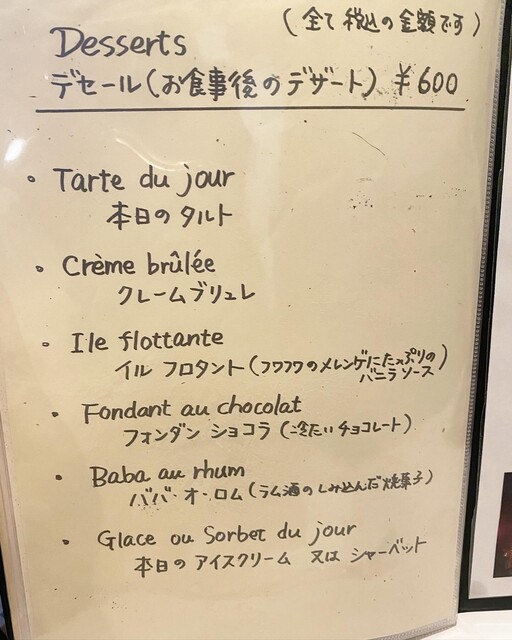 (全て税込の金額です)
Desserts
デセール(お食事後のデザート) ¥600
• Tarte du jour
本日のタルト
• Crème brûlée
クレームブリュレ
• Ile flottante
イル フロタント(フワフワのメレンゲにたっぷりの
バニラソース)
• Fondant au chocolat
フォンダン ショコラ(冷たいチョコレート)
• Baba au rhum
ババ・オ・ロム(ラム酒のしみ込んだ焼菓子)
• Glace ou Sorbet du jour
本日の アイスクリーム 又は シャーベット